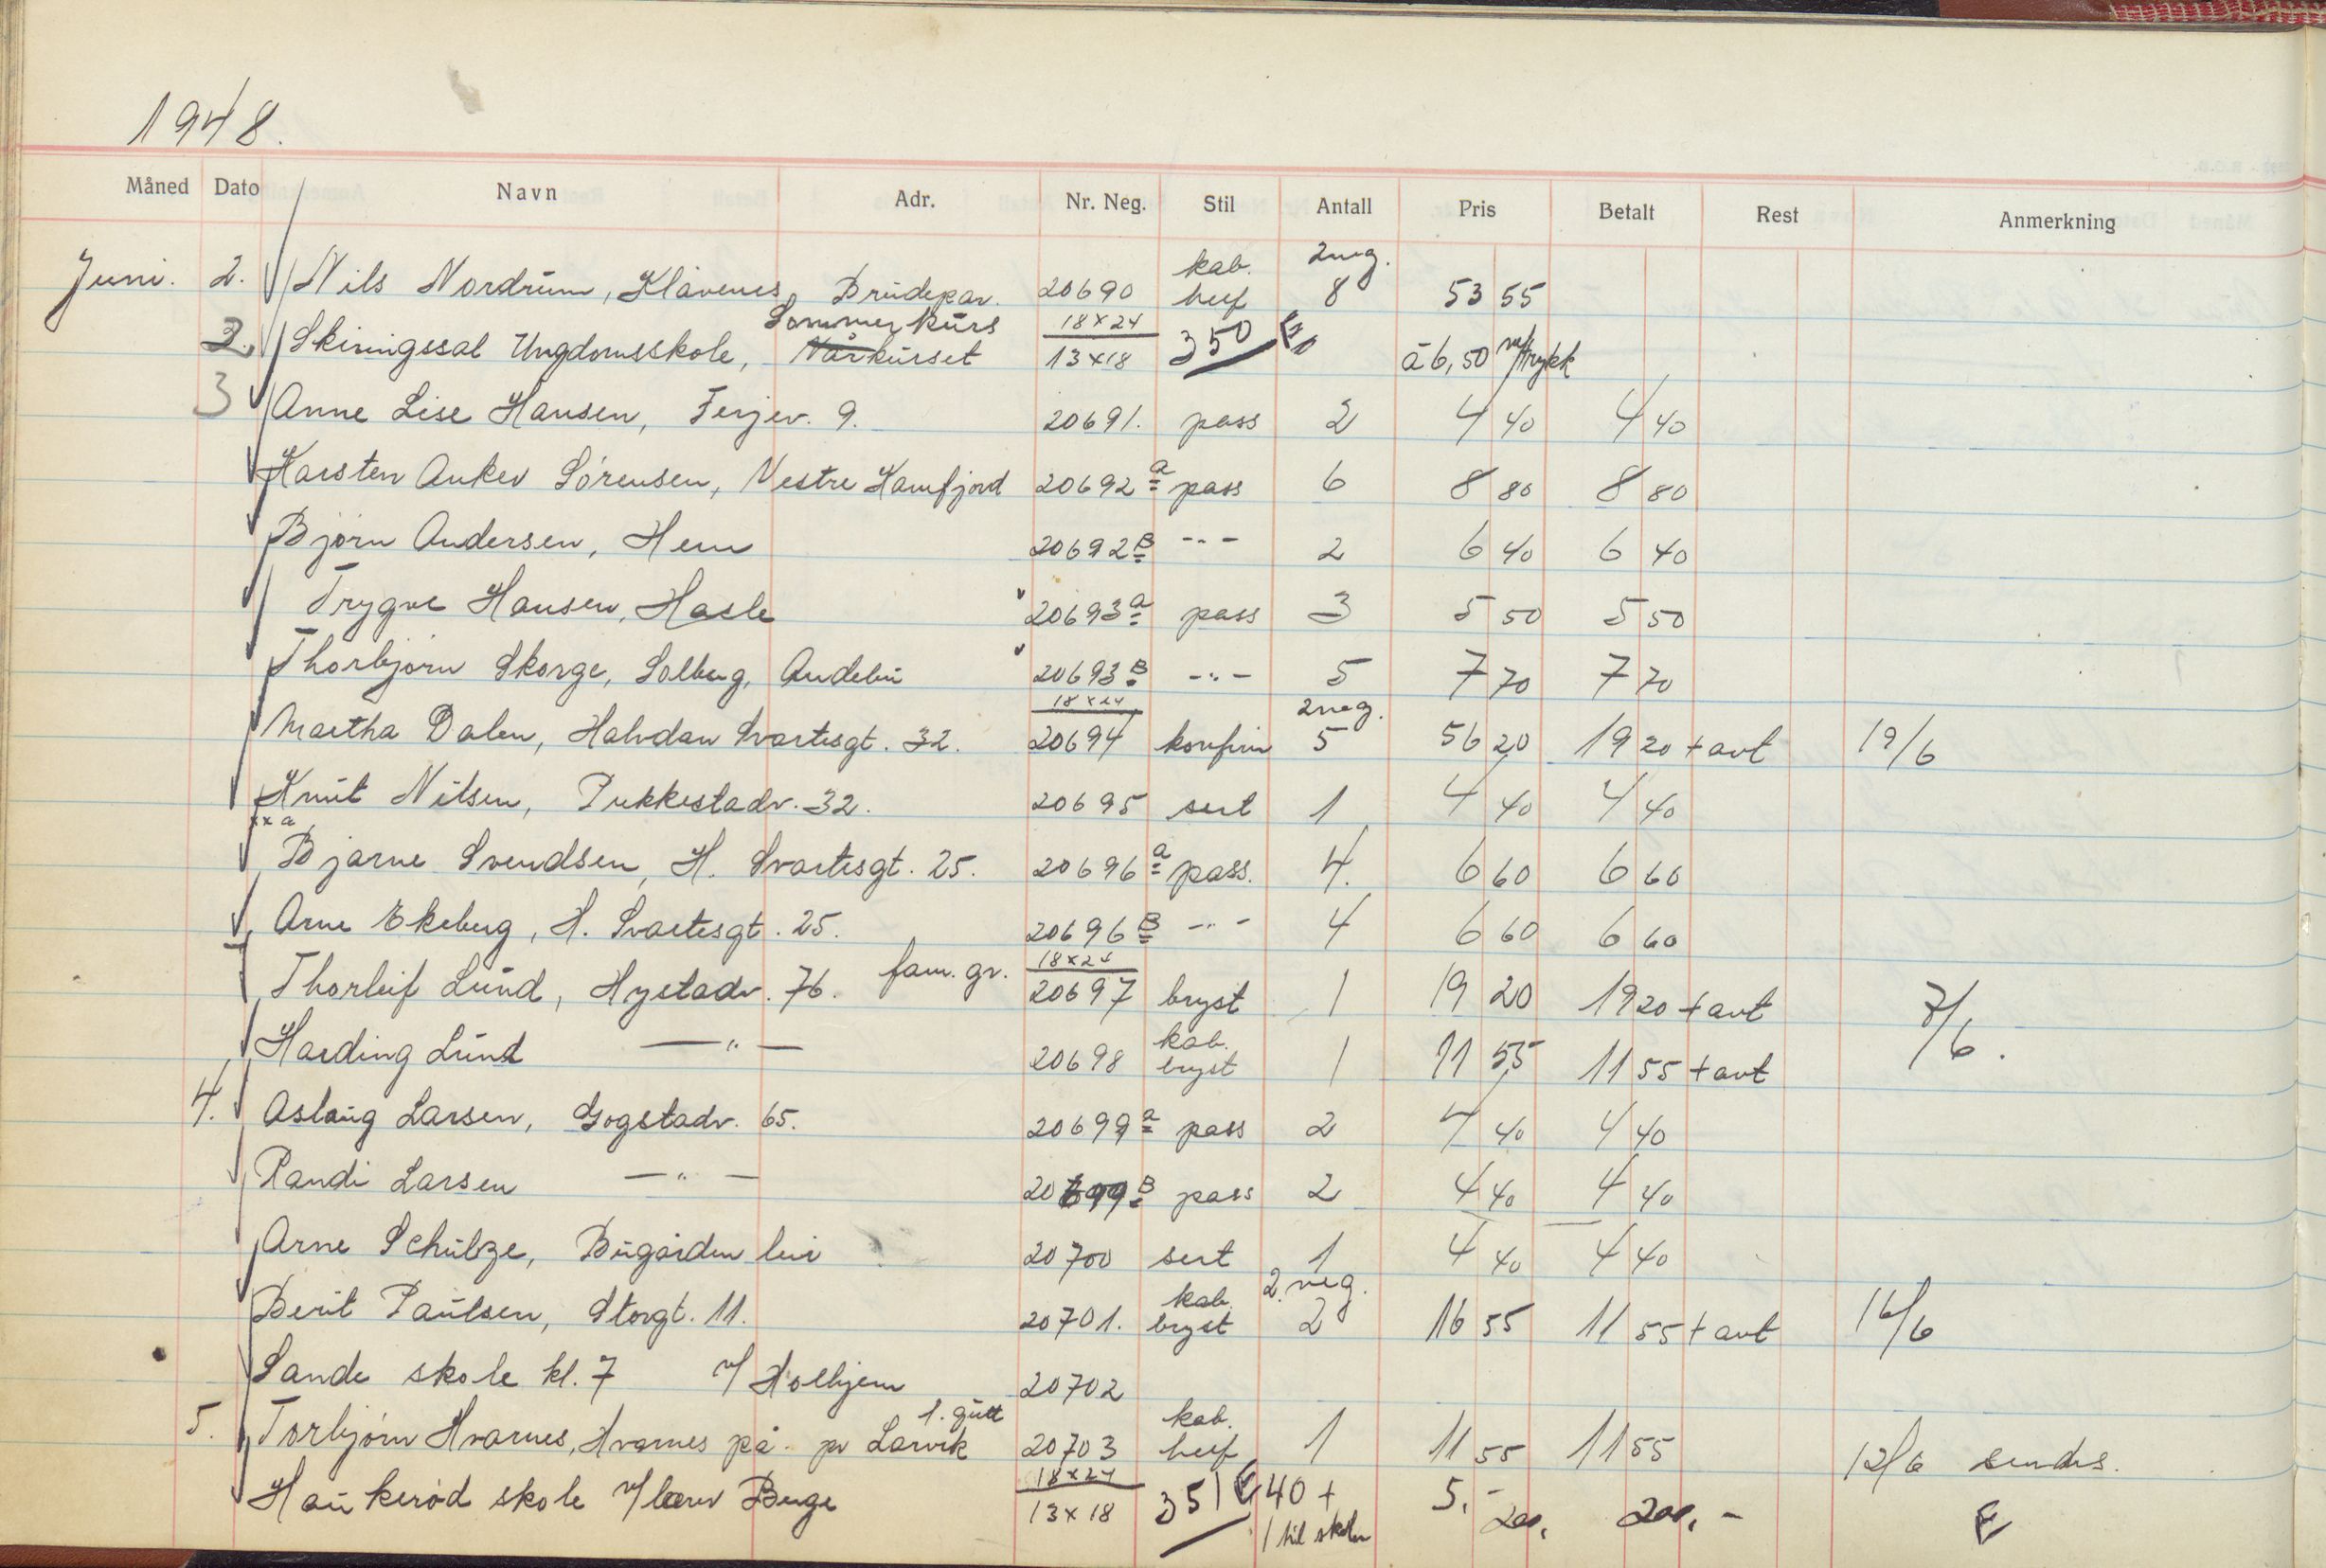 1948.
Måned Dato Navn Adr. Nr. Neg. Stil Antall Pris Betalt Rest Anmerkning
Juni. 2. Nils Nordrum, Klåvenes Brudepar. 20690 kab. 2 neg. 8 53 55
Sommerkurs
2. Skiringssal Ungdomsskole, Vårkurset 18x24 13x18 350 à 6,50 m/trykk
3 Anne Lise Hansen, Ferjev. 9. 20691. pass 2 4 40 4 40
Karsten Anker Sørensen, Vestre Hamfjord 20692 a pass 6 8 80 8 80
Bjørn Andersen, Hem 20692 B -"- 2 6 40 6 40
Trygve Hansen, Hasle 20693 a pass 3 5 50 5 50
Thorbjørn Skorge, Solberg, Andebu 20693 B -"- 5 7 70 7 70
Martha Dalen, Halvdan Svartesgt. 32. 18x24 20694 konfirm 2 neg. 5 56 20 19 20 + avt 19/6
Knut Nilsen, Pukkestadv. 32. 20695 sert 1 4 40 4 40
xx a
Bjarne Svendsen, H. Svartesgt. 25. 20696 a pass. 4. 6 60 6 60
Arne Ekeberg, H. Svartesgt. 25. 20696 B -"- 4 6 60 6 60
Thorleif Lund, Hystadv. 76. fam. gr. 18x24 20697 bryst 1 19 20 19 20 + avt 7/6.
Harding Lund -"- 20698 kab. bryst 1 11 55 11 55 + avt
4. Aslaug Larsen, Gogstadv. 65. 20699 a pass 2 4 40 4 40
Randi Larsen -"- 20699 B pass 2 4 40 4 40
Arne Schulze, Bugården leir 20700 sert 1 4 40 4 40
Berit Paulsen, Storgt. 11. 20701. kab. bryst 2 neg. 2 16 55 11 55 + avt 16/6
Sande skole kl. 7 v/ Holhjem 20702
5. Torbjørn Hvarnes, Hvarnes på. pr Larvik 1. gutt 20703 kab. 1 11 55 11 55 12/6 sendes.
Haukerød skole v/ lærer Berge 18x24 13x18 351 40 + 5,- 200, 200,-
1 til skolen